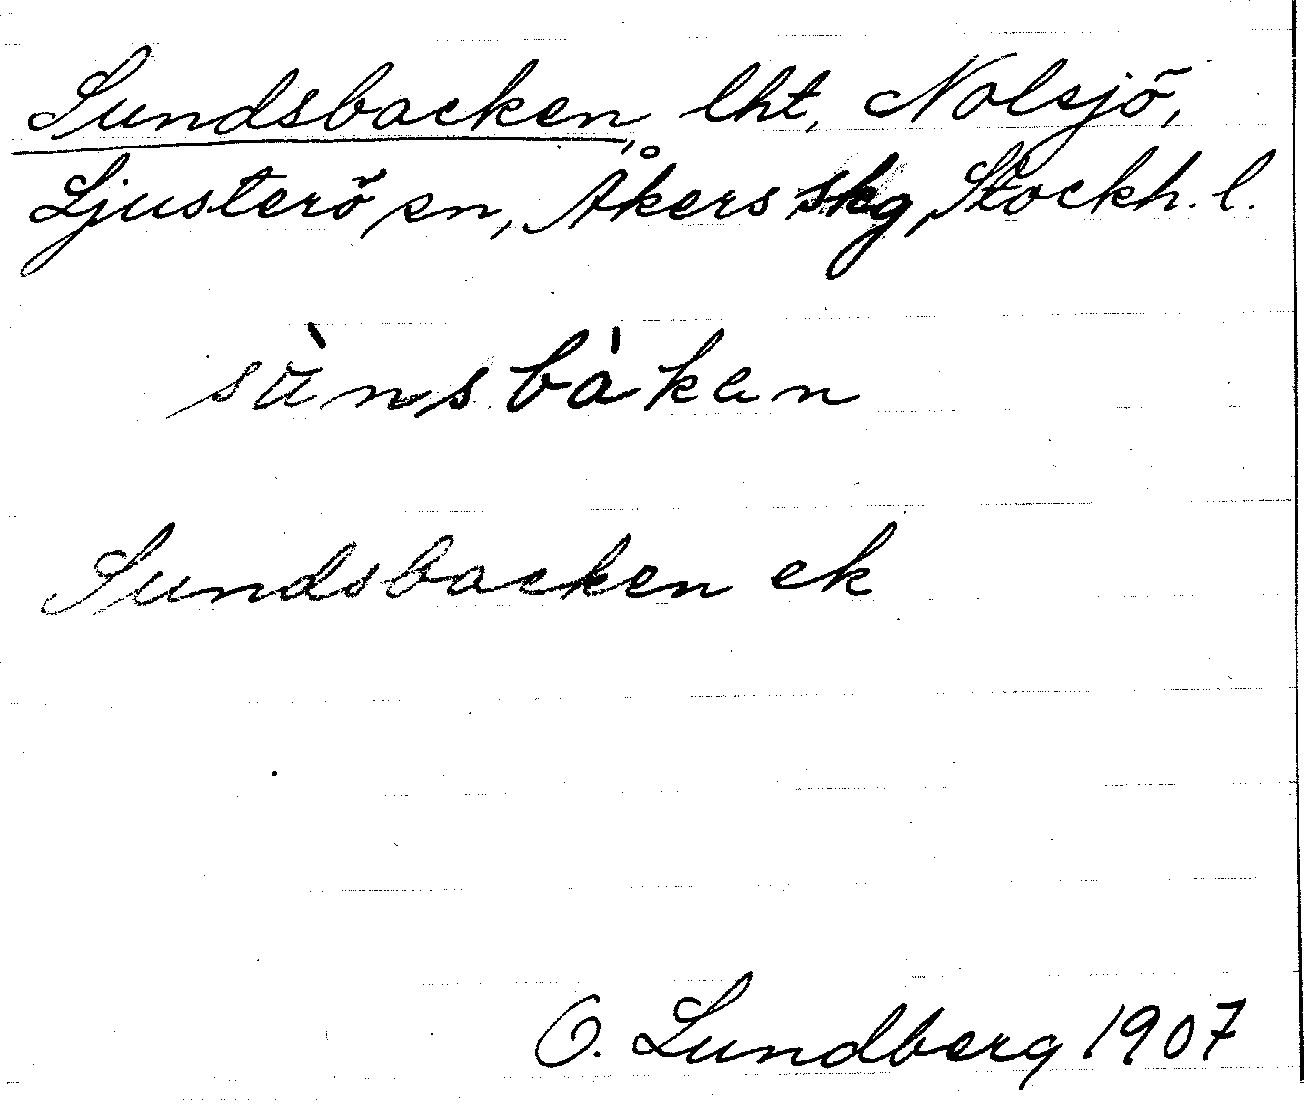 Sundsbacken, lht, Nolsjö,
Ljusterö sn, Åkers skg, Stockh. l.
sùnsbàken
Sundsbacken ek
O. Lundberg 1907